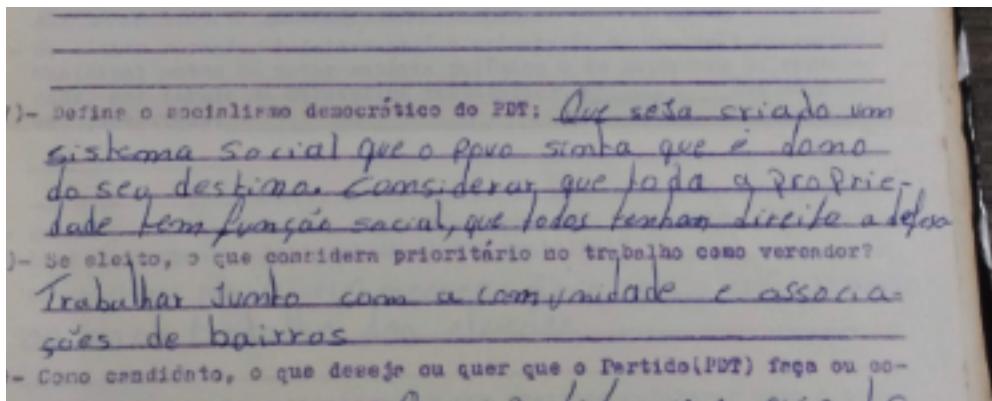 )- Define o socialismo democrático do PDT: Que seja criado um
sistema social que o povo sinta que é dono
do seu destino. Considerar que toda a proprie-
dade tem função social, que todos tenham direito a defesa
)- Se eleito, o que considera prioritário no trabalho como vereador?
Trabalhar Junto com a comunidade e associa-
ções de bairros
)- Como candidato, o que deseja ou quer que o Partido(PDT) faça ou co-